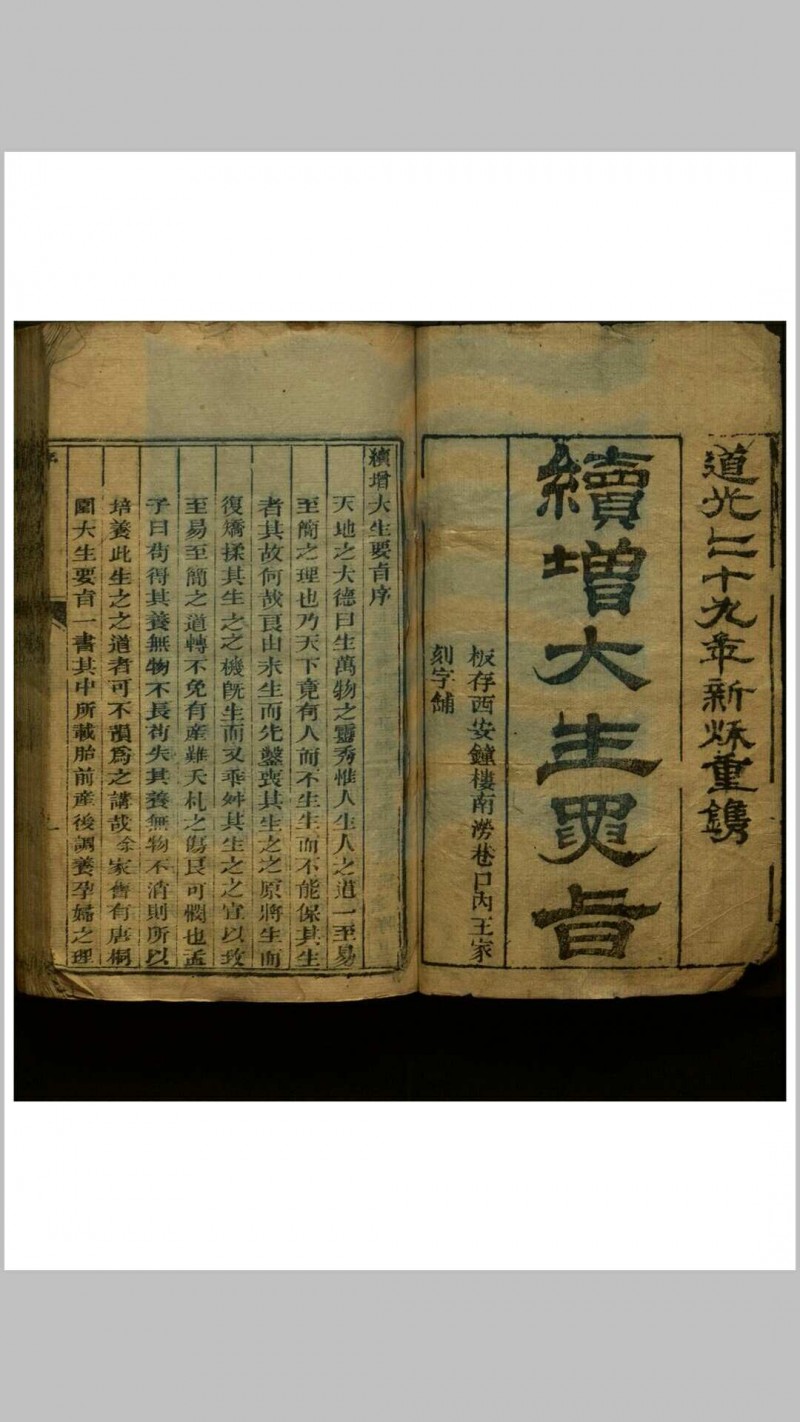 道光二十九年新秌重鐫
續增大生要旨
板存西安鐘樓南澇巷口內王家
刻字舖
續增大生要旨序
天地之大德曰生萬物之靈秀惟人生人之道一至易
至簡之理也乃天下竟有人而不生生而不能保其生
者其故何哉良由未生而先鑿喪其生之之原將生而
復矯揉其生之之機旣生而又乖舛其生之之宜以致
至易至簡之道轉不免有産難夭札之傷良可憫也孟
子曰苟得其養無物不長苟失其養無物不消則所以
培養此生之之道者可不預爲之講哉余家舊有唐桐
園大生要旨一書其中所載胎前産後調養孕婦之理